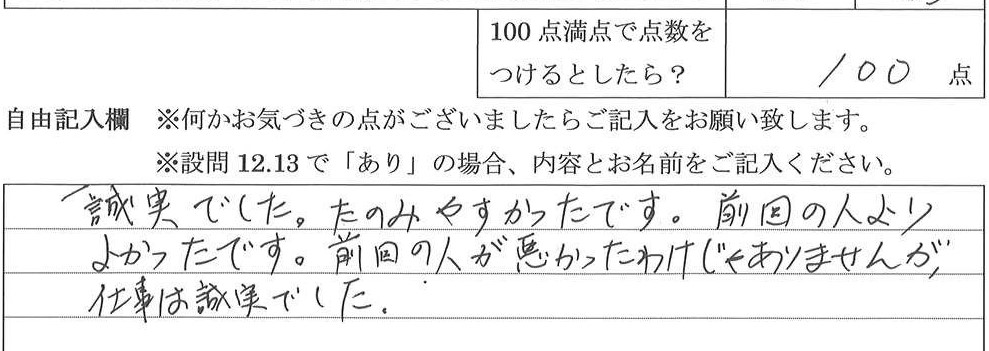 100点満点で点数を
つけるとしたら？
100 点
自由記入欄 ※何かお気づきの点がございましたらご記入をお願い致します。
※設問12.13で「あり」の場合、内容とお名前をご記入ください。
誠実でした。たのみやすかったです。前回の人より
よかったです。前回の人が悪かったわけじゃありませんが、
仕事は誠実でした.